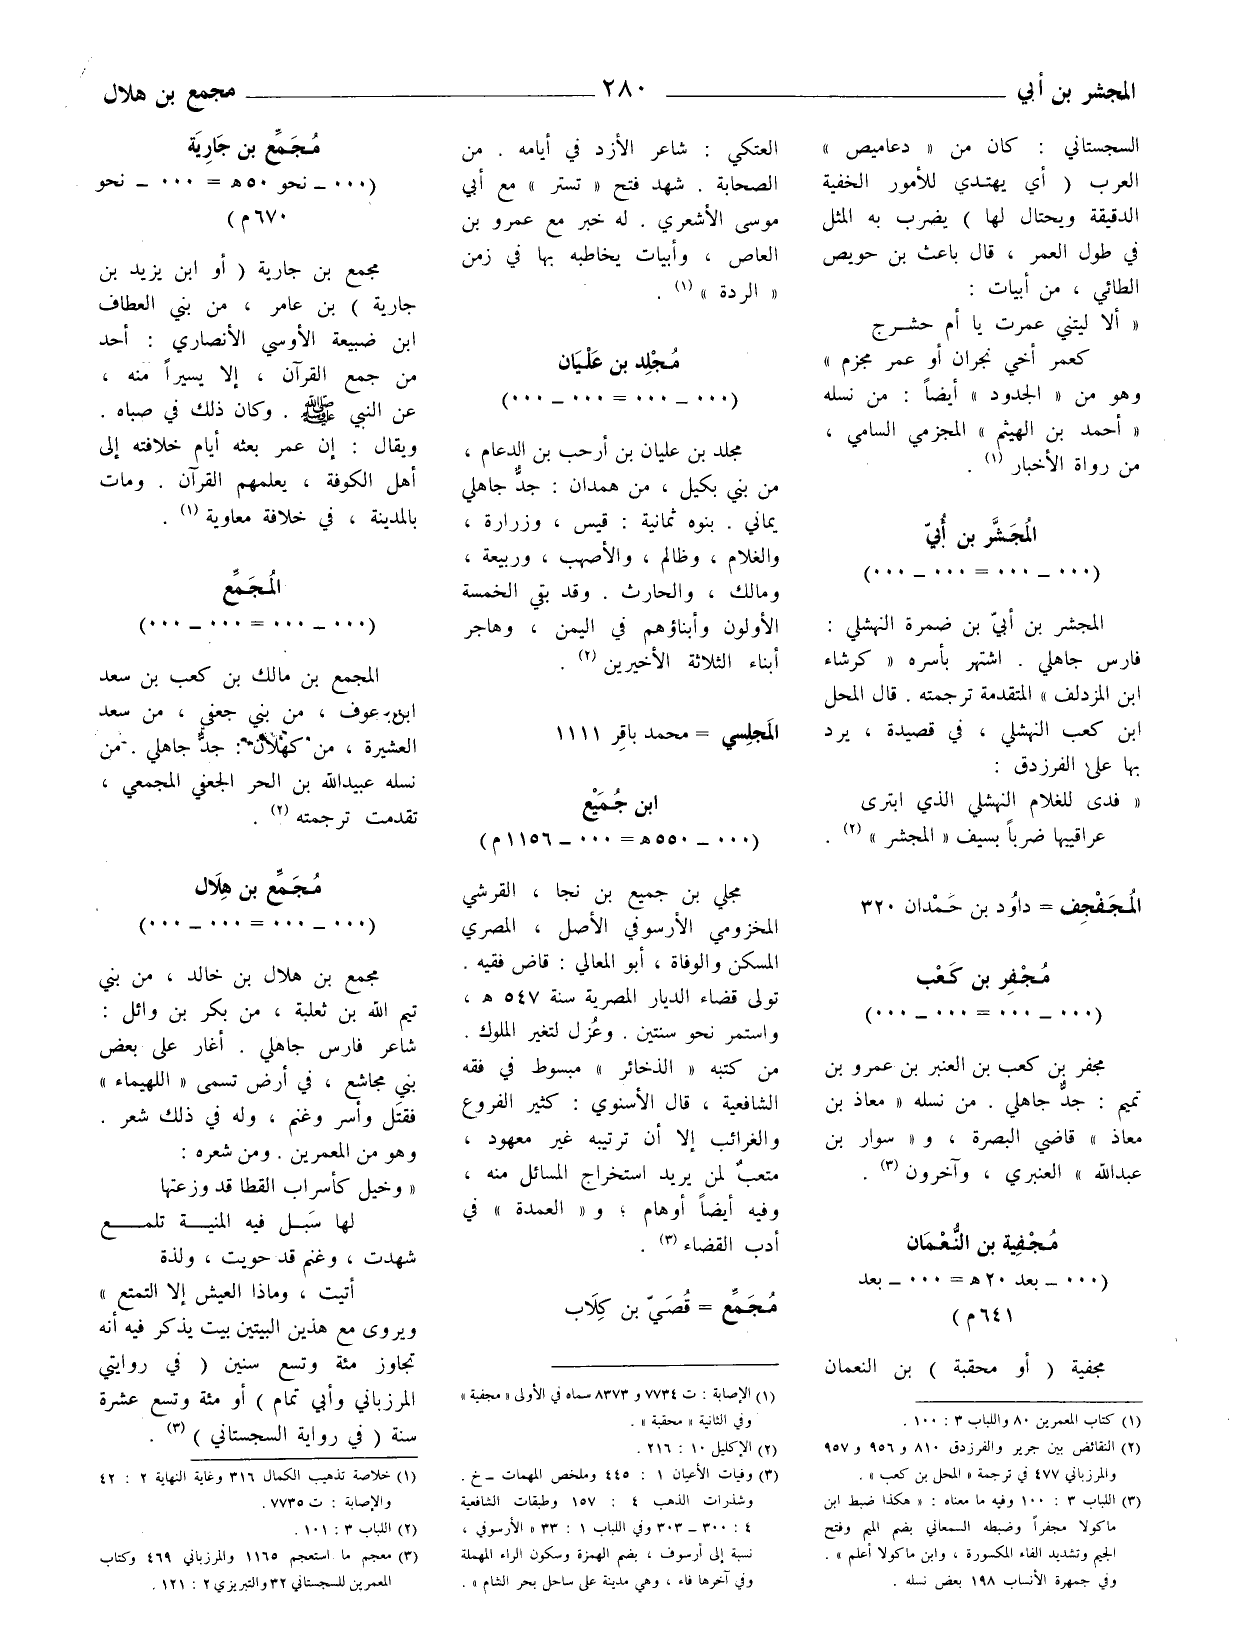 المجشر بن أبي ــــــ ٢٨٠ ــــــ مجمع بن هلال
السجستاني : كان من « دعاميص »
العرب ( أي يهتدي للأمور الخفية
الدقيقة ويحتال لها ) يضرب به المثل
في طول العمر ، قال باعث بن حويص
الطائي ، من أبيات :
« ألا ليتني عمرت يا أم حشرج
كعمر أخي نجران أو عمر مجزم »
وهو من « الجدود » أيضاً : من نسله
« أحمد بن الهيثم » المجزمي السامي ،
من رواة الأخبار (١) .
المُجَشَّر بن أُبيّ
(٠٠٠ ــ ٠٠٠ = ٠٠٠ ــ ٠٠٠)
المجشر بن أبيّ بن ضمرة النهشلي :
فارس جاهلي . اشتهر بأسره « كرشاء
ابن المزدلف » المتقدمة ترجمته . قال المحل
ابن كعب النهشلي ، في قصيدة ، يرد
بها على الفرزدق :
« فدى للغلام النهشلي الذي ابترى
عراقيبها ضرباً بسيف « المجشر » (٢) .
المُجَفْجِف = داوُد بن حَمْدان ٣٢٠
مُجْفِر بن كَعْب
(٠٠٠ ــ ٠٠٠ = ٠٠٠ ــ ٠٠٠)
مجفر بن كعب بن العنبر بن عمرو بن
تميم : جدٌّ جاهلي . من نسله « معاذ بن
معاذ » قاضي البصرة ، و « سوار بن
عبدالله » العنبري ، وآخرون (٣) .
مُجْفِية بن النُّعْمَان
(٠٠٠ ــ بعد ٢٠ ه = ٠٠٠ ــ بعد
٦٤١ م )
مجفية ( أو محقبة ) بن النعمان
(١) كتاب المعمرين ٨٠ واللباب ٣ : ١٠٠ .
(٢) النقائض بين جرير والفرزدق ٨١٠ و ٩٥٦ و ٩٥٧
والمرزباني ٤٧٧ في ترجمة « المحل بن كعب » .
(٣) اللباب ٣ : ١٠٠ وفيه ما معناه : « هكذا ضبط ابن
ماكولا مجفراً وضبطه السمعاني بضم الميم وفتح
الجيم وتشديد الفاء المكسورة ، وابن ماكولا أعلم » .
وفي جمهرة الأنساب ١٩٨ بعض نسله .
العتكي : شاعر الأزد في أيامه . من
الصحابة . شهد فتح « تستر » مع أبي
موسى الأشعري . له خبر مع عمرو بن
العاص ، وأبيات يخاطبه بها في زمن
« الردة » (١) .
مُجْلِد بن عَلْيَان
(٠٠٠ ــ ٠٠٠ = ٠٠٠ ــ ٠٠٠)
مجلد بن عليان بن أرحب بن الدعام ،
من بني بكيل ، من همدان : جدٌّ جاهلي
يماني . بنوه ثمانية : قيس ، وزرارة ،
والغلام ، وظالم ، والأصهب ، وربيعة ،
ومالك ، والحارث . وقد بقي الخمسة
الأولون وأبناؤهم في اليمن ، وهاجر
أبناء الثلاثة الأخيرين (٢) .
المَجلِسي = محمد باقِر ١١١١
ابن جُمَيْع
(٠٠٠ ــ ٥٥٠ ه = ٠٠٠ ــ ١١٥٦ م)
مجلي بن جميع بن نجا ، القرشي
المخزومي الأرسوفي الأصل ، المصري
المسكن والوفاة ، أبو المعالي : قاض فقيه .
تولى قضاء الديار المصرية سنة ٥٤٧ ه ،
واستمر نحو سنتين . وعُزل لتغير الملوك .
من كتبه « الذخائر » مبسوط في فقه
الشافعية ، قال الأسنوي : كثير الفروع
والغرائب إلا أن ترتيبه غير معهود ،
متعبٌ لمن يريد استخراج المسائل منه ،
وفيه أيضاً أوهام ؛ و « العمدة » في
أدب القضاء (٣) .
مُجَمِّع = قُصَيّ بن كِلَاب
(١) الإصابة : ت ٧٧٣٤ و ٨٣٧٣ سماه في الأولى « مجفية »
وفي الثانية « محقبة » .
(٢) الإكليل ١٠ : ٢١٦ .
(٣) وفيات الأعيان ١ : ٤٤٥ وملخص المهمات ــ خ .
وشذرات الذهب ٤ : ١٥٧ وطبقات الشافعية
٤ : ٣٠٠ ــ ٣٠٣ وفي اللباب ١ : ٣٣ « الأرسوفي ،
نسبة إلى أرسوف ، بضم الهمزة وسكون الراء المهملة
وفي آخرها فاء ، وهي مدينة على ساحل بحر الشام » .
مُجَمِّع بن جَارِيَة
(٠٠٠ ــ نحو ٥٠ ه = ٠٠٠ ــ نحو
٦٧٠ م )
مجمع بن جارية ( أو ابن يزيد بن
جارية ) بن عامر ، من بني العطاف
ابن ضبيعة الأوسي الأنصاري : أحد
من جمع القرآن ، إلا يسيراً منه ،
عن النبي ﷺ . وكان ذلك في صباه .
ويقال : إن عمر بعثه أيام خلافته إلى
أهل الكوفة ، يعلمهم القرآن . ومات
بالمدينة ، في خلافة معاوية (١) .
المُجَمِّع
(٠٠٠ ــ ٠٠٠ = ٠٠٠ ــ ٠٠٠)
المجمع بن مالك بن كعب بن سعد
ابن عوف ، من بني جعفي ، من سعد
العشيرة ، من كهلان : جدٌّ جاهلي . من
نسله عبيدالله بن الحر الجعفي المجمعي ،
تقدمت ترجمته (٢) .
مُجَمِّع بن هِلَال
(٠٠٠ ــ ٠٠٠ = ٠٠٠ ــ ٠٠٠)
مجمع بن هلال بن خالد ، من بني
تيم الله بن ثعلبة ، من بكر بن وائل :
شاعر فارس جاهلي . أغار على بعض
بني مجاشع ، في أرض تسمى « اللهيماء »
فقتل وأسر وغنم ، وله في ذلك شعر .
وهو من المعمرين . ومن شعره :
« وخيل كأسراب القطا قد وزعتها
لها سَبَل فيه المنية تلمع
شهدت ، وغنم قد حويت ، ولذة
أتيت ، وماذا العيش إلا التمتع »
ويروى مع هذين البيتين بيت يذكر فيه أنه
تجاوز مئة وتسع سنين ( في روايتي
المرزباني وأبي تمام ) أو مئة وتسع عشرة
سنة ( في رواية السجستاني ) (٣) .
(١) خلاصة تذهيب الكمال ٣١٦ وغاية النهاية ٢ : ٤٢
والإصابة : ت ٧٧٣٥ .
(٢) اللباب ٣ : ١٠١ .
(٣) معجم ما استعجم ١١٦٥ والمرزباني ٤٦٩ وكتاب
المعمرين للسجستاني ٣٢ والتبريزي ٢ : ١٢١ .